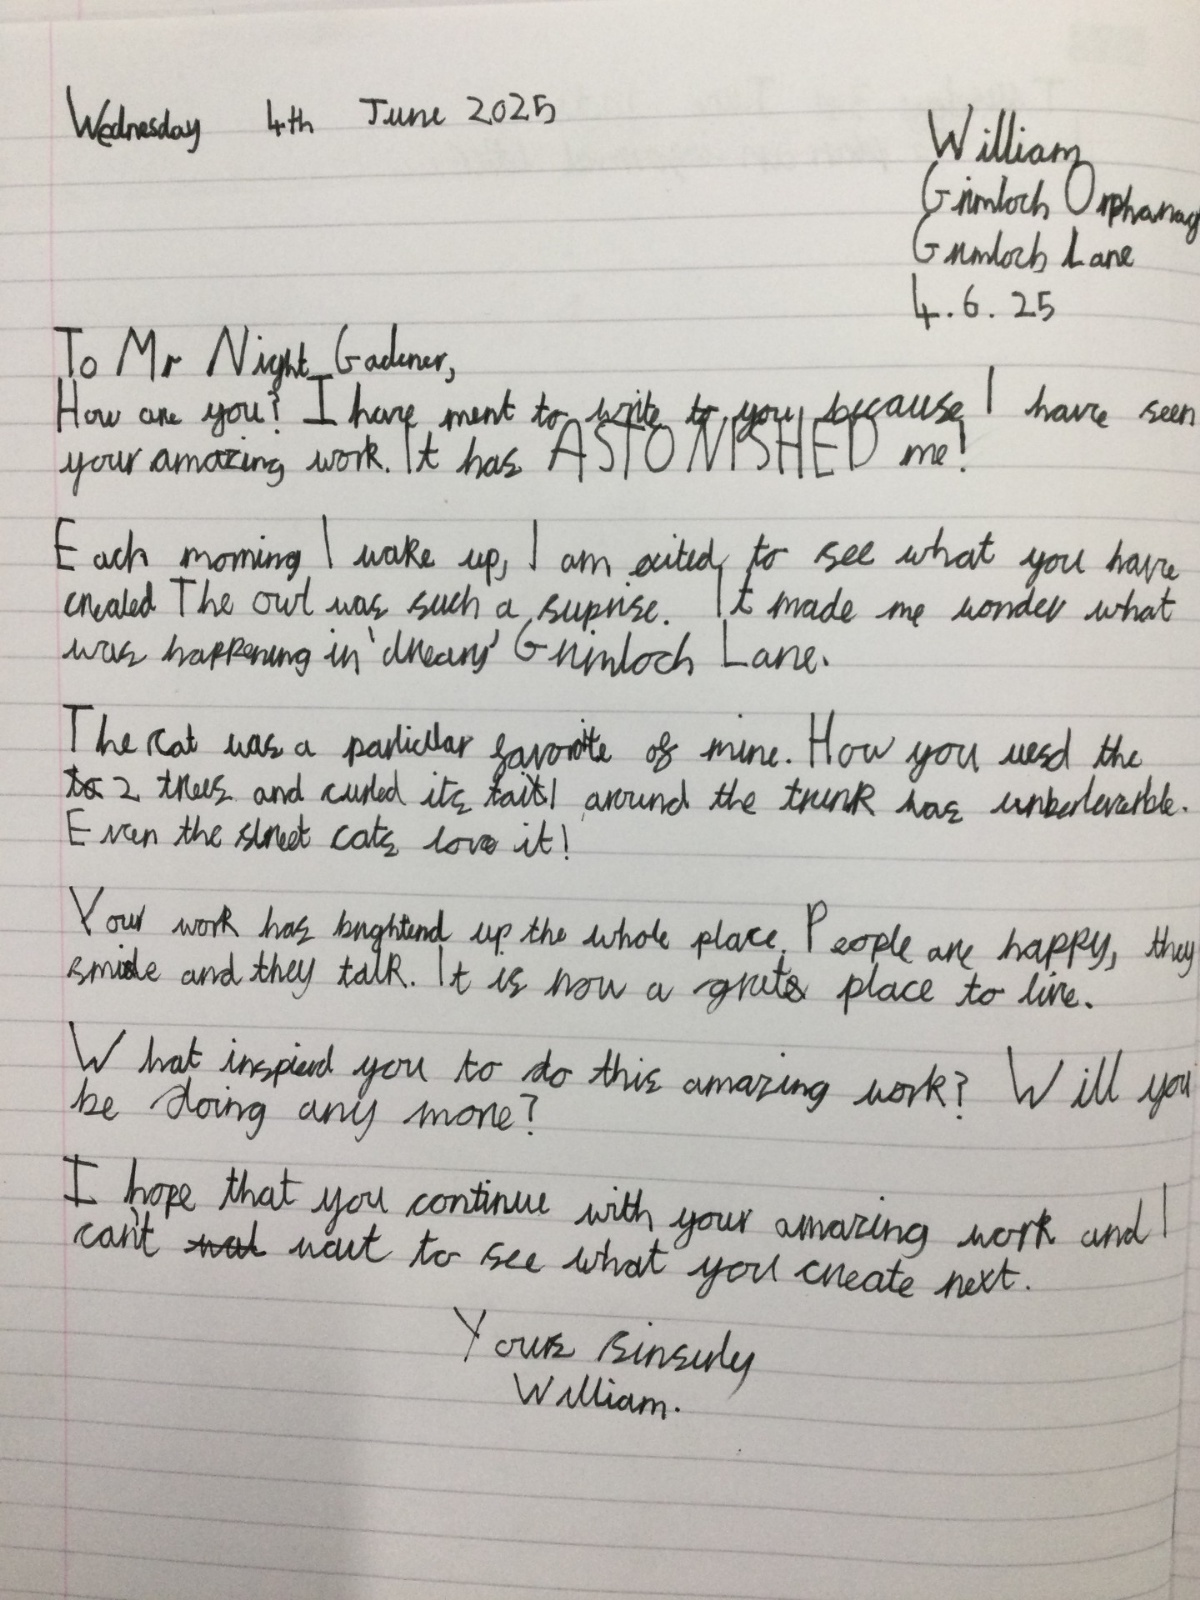 Wednesday 4th June 2025
William
Grimloch Orphanag
Grimloch Lane
4.6.25
To Mr Night Gadener,
How are you? I have ment to write to you because I have seen
your amazing work. It has ASTONISHED me!
Each morning I wake up, I am exited to see what you have
created The owl was such a suprise. It made me wonder what
was happening in 'dreary' Grimloch Lane.
The cat was a particular favorite of mine. How you uesd the
to 2 trees and curled its tail around the trunk has unberleverble.
Even the street cats love it!
Your work has brightend up the whole place. People are happy, they
smile and they talk. It is now a grate place to live.
What inspierd you to do this amazing work? Will you
be doing any more?
I hope that you continue with your amazing work and I
can't wait to see what you create next.
Yours sinserly
William.